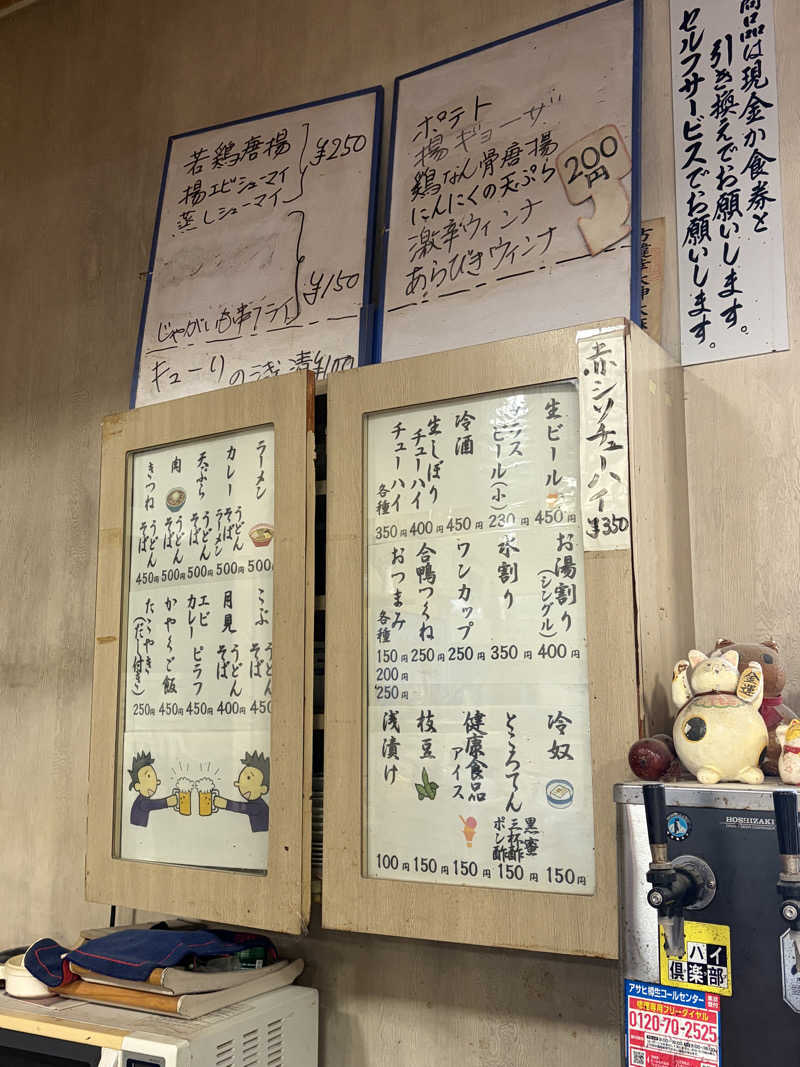 商品は現金か食券と
引き換えでお願いします。
セルフサービスでお願いします。
ポテト
揚ギョーザ
鶏なん骨唐揚
にんにくの天ぷら
激辛ウィンナ
あらびきウィンナ
200円
若鶏唐揚
揚エビシューマイ
蒸しシューマイ
¥250
じゃがいも串フライ
¥150
キューリの浅漬¥100
赤シソチューハイ ¥350
生ビール 450円
グラスビール(小) 230円
冷酒 450円
生しぼりチューハイ 400円
チューハイ 各種 350円
お湯割り(シングル) 400円
水割り 350円
ワンカップ 250円
合鴨つくね 250円
おつまみ 各種 150円
200円
250円
冷奴 150円
ところてん 黒蜜 三杯酢 ポン酢 150円
健康食品 アイス 150円
枝豆 150円
浅漬け 100円
ラーメン 500
カレー うどん そば ラーメン 500円
天ぷら うどん そば 500円
肉 うどん そば 500円
きつね うどん そば 450円
こぶ うどん そば 450
月見 うどん そば 400円
エビカレーピラフ 450円
かやくご飯 450円
たこやき(だし付き) 250円
金運
HOSHIZAKI
パイ
倶楽部
アサヒ樽生コールセンター
修理専用フリーダイヤル
0120-70-2525